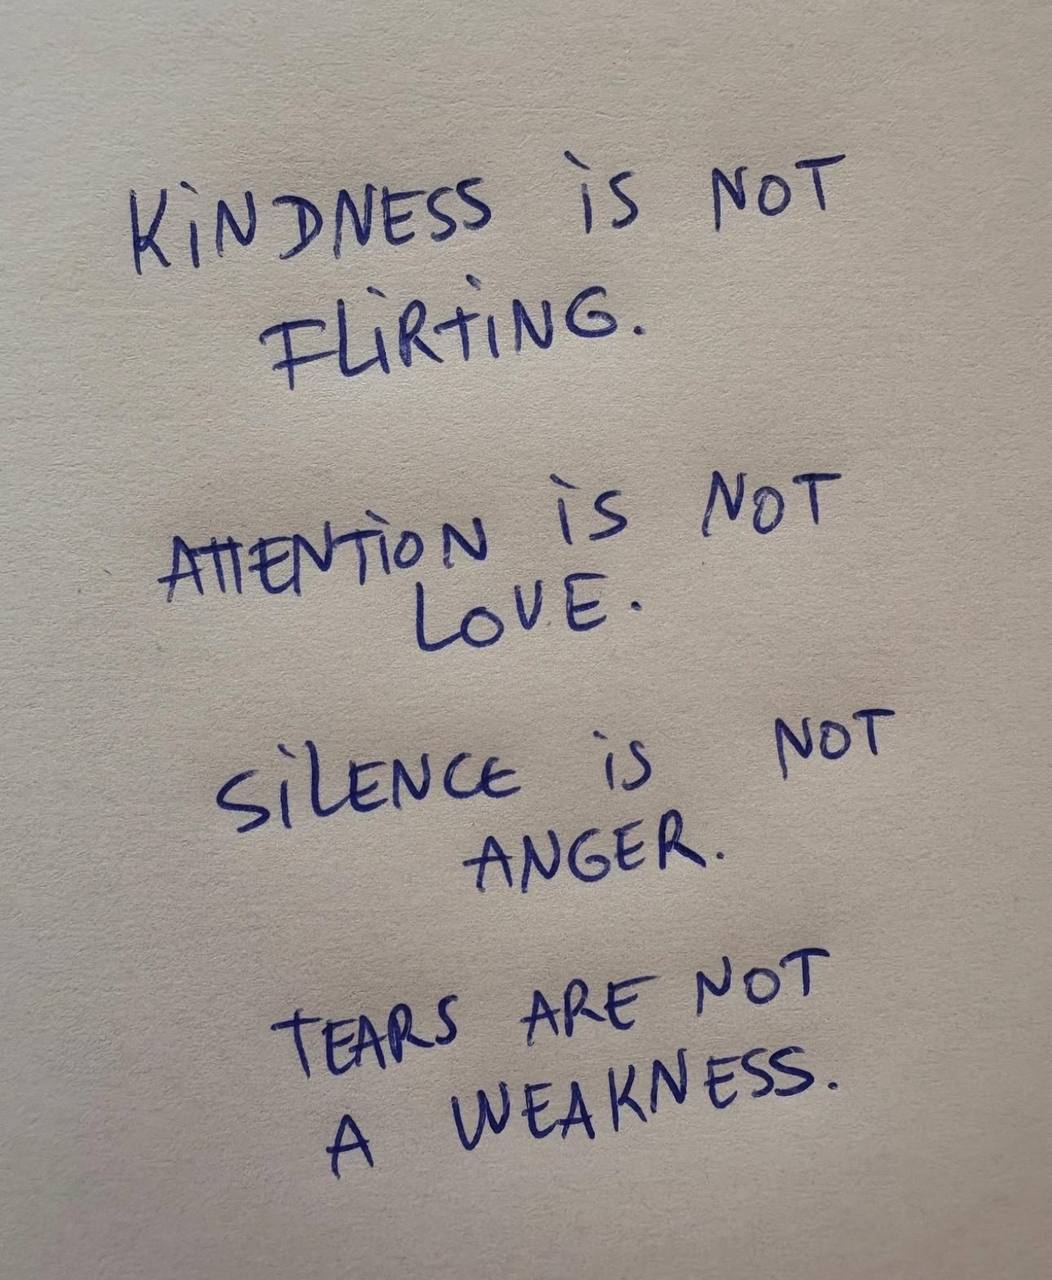 KiNDNESS iS NOT
FLiRTiNG.
ATTENTiON iS NOT
LOVE.
SiLENCE iS NOT
ANGER.
TEARS ARE NOT
A WEAKNESS.